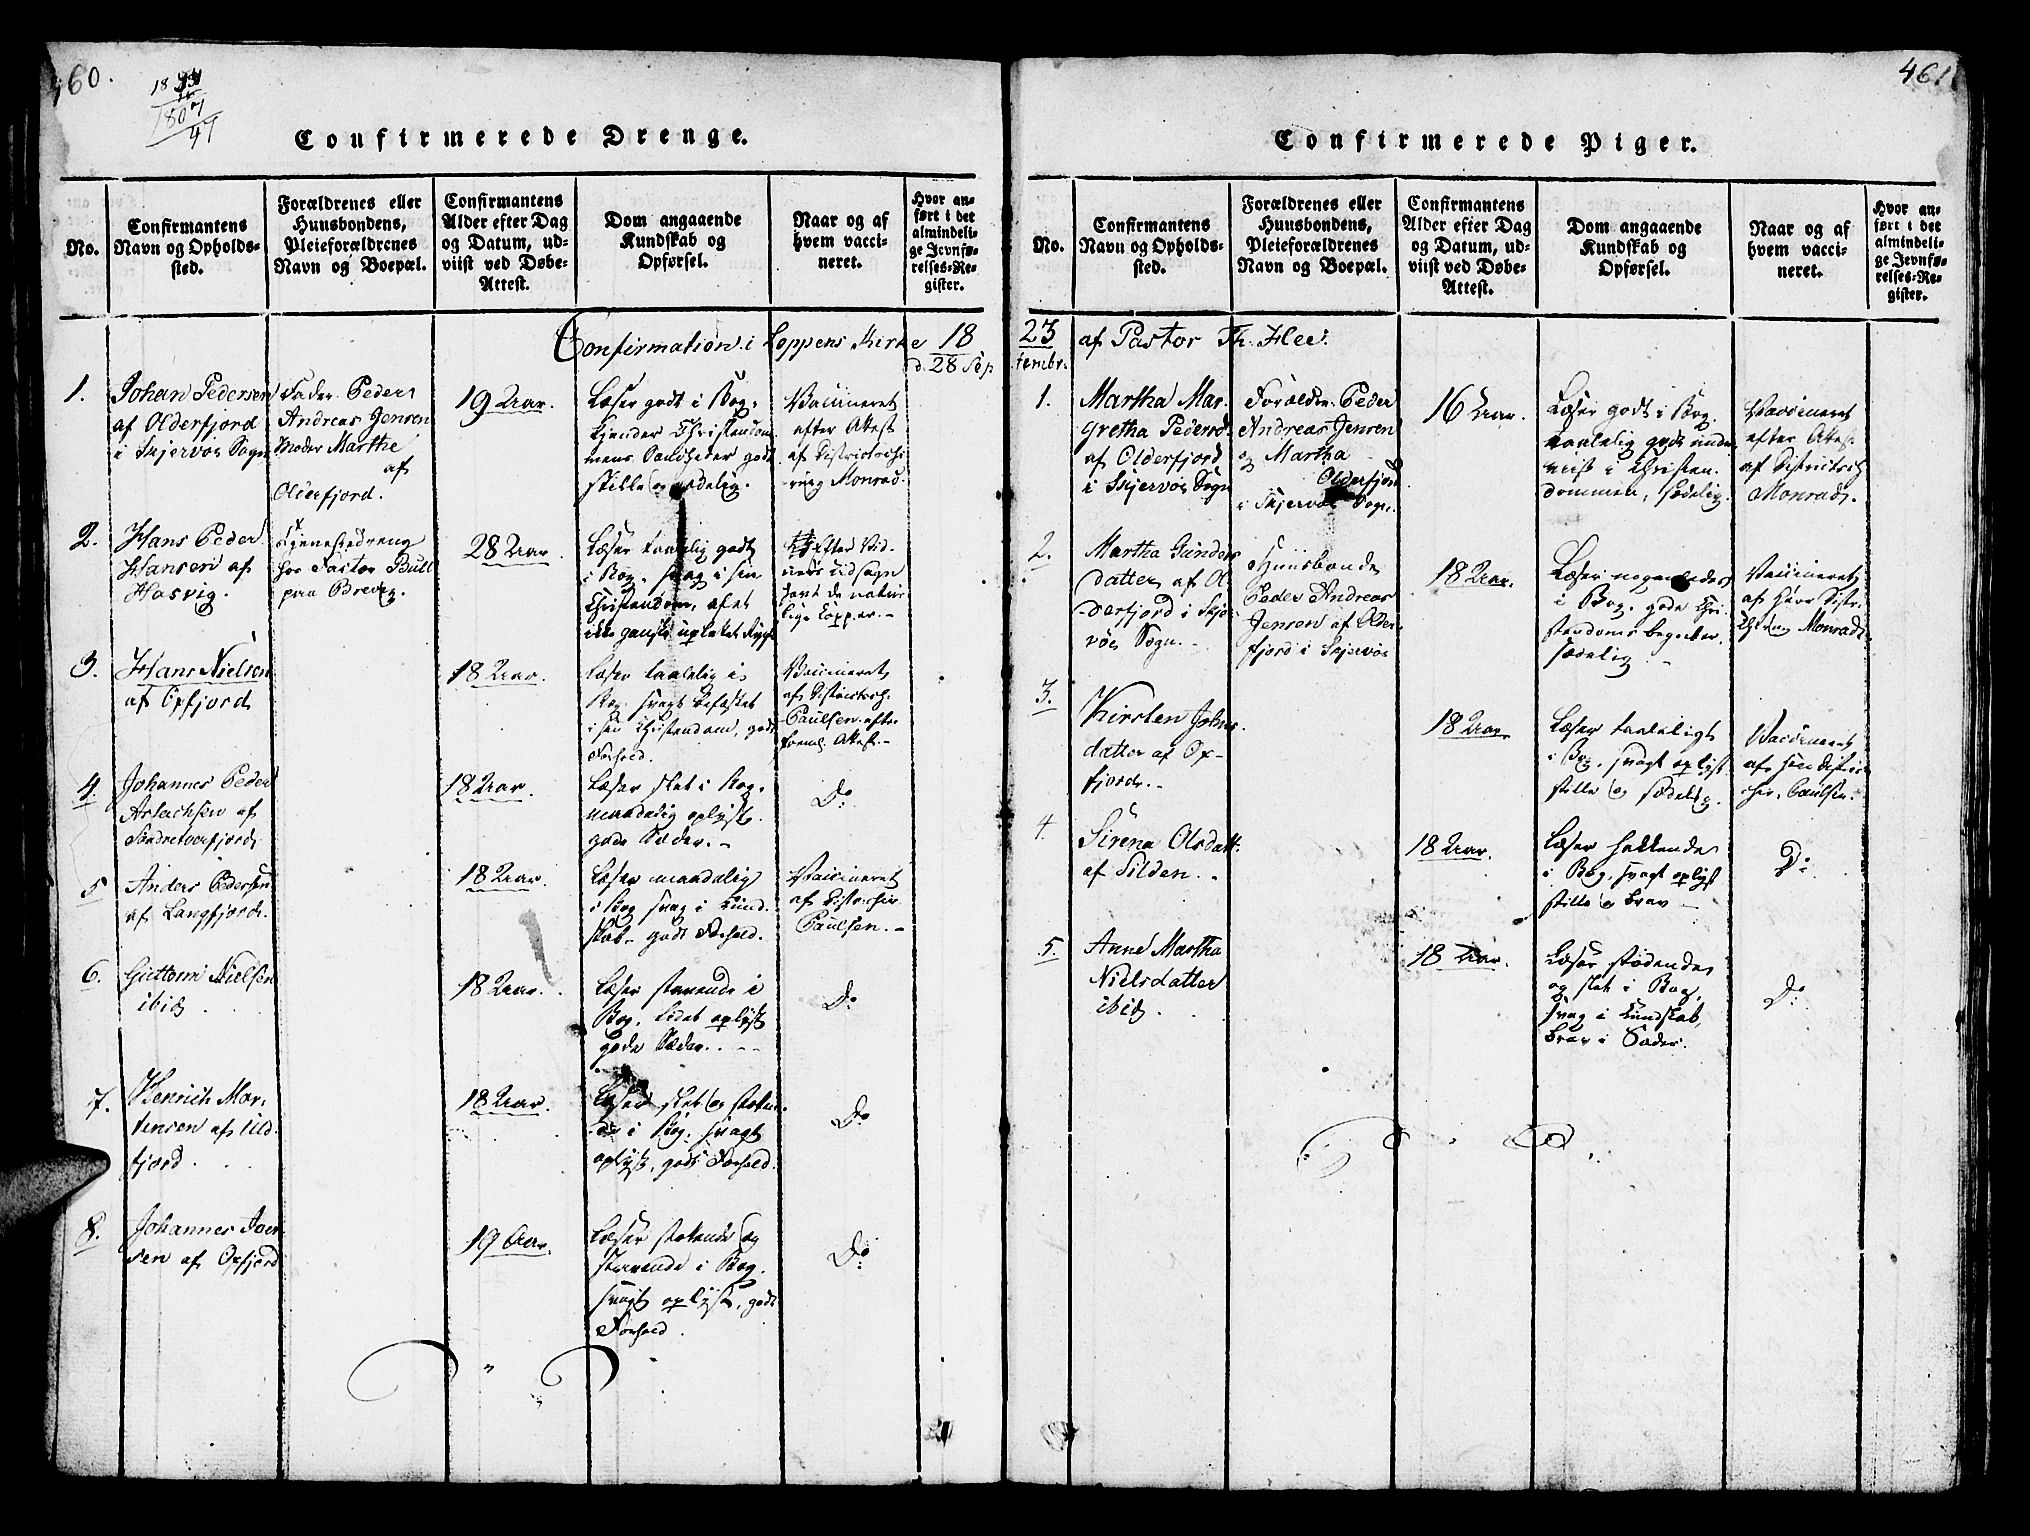 460.
1823
16
1807
47
Confirmerede Drenge.
No.
Confirmantens
Navn og Opholds-
sted.
Forældrenes eller
Huusbondens,
Pleieforældrenes
Navn og Boepæl.
Confirmantens
Alder efter Dag
og Datum, ud-
viist ved Døbe-
Attest.
Dom angaaende
Kundskab og
Opførsel.
Naar og af
hvem vacci-
neret.
Hvor an-
ført i det
almindeli-
ge Jevnfø-
relses-Re-
gister.
Confirmation i Loppens Kirke 18
d. 28 Sep
1.
Johan Pedersen
af Olderfjord
i Skjervøs Sogn
Fader Peder
Andreas Jensen
Moder Marthe
af
Olderfjord.
19 Aar.
Læser godt i Bog,
kjender Christendom-
mens Sandheder godt
stille og sædelig.
Vaccineret
efter Attest
af Districtschi-
rurg Monrad.
2.
Hans Peder
Hansen af
Hasvig.
Tjenestedreng
hos Pastor Bull
paa Brevig.
28 Aar.
Læser taalelig godt
i Bog, svag i sin
Christendom, af et
ikke ganske uplettet Rygte
efter Vid-
nes Udsagn
havt de natur-
lige Kopper.-
3.
Hans Nielsen
af Oxfjord
18 Aar.
Læser taalelig i
Bog svagt befæstet
i sin Christendom, godt
Forhold.
Vaccineret
af Districtsch.
Paulsen efter
foreml. Attest.-
4.
Johannes Peder
Aslachsen af
Søndretverfjord
18 Aar.
Læser slet i Bog,
maadelig oplyst.
gode Sæder.-
Do
5
Anders Pedersen
af Langfjord.
18 Aar.
Læser maadelig
i Bog svag i Kund-
skab. godt Forhold.
Vaccineret
af Distr. chir.
Paulsen.-
6.
Guttorm Nielsen
ibid
18 Aar.
Læser stavende i
Bog. Lidet oplyst
gode Sæder.
Do
7.
Henrich Mor-
tensen af Uld-
fjord.
18 Aar.
Læser slet og støden-
de i Bog, svagt
oplyst, godt Forhold.
Do
8.
Johannes Joen-
sen af Oxfjord
19 Aar.
Læser stødende og
stavende i Bog.
svagt oplyst, godt
Forhold.
Do
461
Confirmerede Piger.
No.
Confirmantens
Navn og Opholds-
sted.
Forældrenes eller
Huusbondens,
Pleieforældrenes
Navn og Boepæl.
Confirmantens
Alder efter Dag
og Datum, ud-
viist ved Døbe-
Attest.
Dom angaaende
Kundskab og
Opførsel.
Naar og af
hvem vacci-
neret.
Hvor an-
ført i det
almindeli-
ge Jevnfø-
relses-Re-
gister.
23 af Pastor Th. Hee.
tembr.
1.
Martha Mar-
gretha Pedersd.
af Olderfjord
i Skjervøs Sogn
Forældre Peder
Andreas Jensen
og Martha
Olderfjord
i Skjervøs Sogn.
16 Aar.
Læser godt i Bog
taalelig godt under-
viist i Christen-
dommen, sædelig.
Vaccineret
efter Attest
af Districtsch
Monrad.
2.
Martha Gunders
datter af Ol-
derfjord i Skjer-
vøs Sogn.-
Huusbonde
Peder Andreas
Jensen af Older-
fjord i Skjervøs
18 Aar.
Læser nogenledes
i Bog, gode Chri-
stendoms begreber,
sædelig.-
Vaccineret
af Herr Distr.
Chirurg Monrad
3.
Kirsten Johns-
datter af Ox-
fjord.-
18 Aar.
Læser taaleligt
i Bog, svagt oplyst
stille og sædelig.
Vaccineret
af Herr Districts-
chir. Paulsen.
4.
Sirena Olsdatt:
af Silden.-
18 Aar.
Læser hakkende
i Bog, svagt oplyst
stille og brav-
Do
5.
Anne Martha
Nielsdatter
ibid
18 Aar.
Læser stødende
og slet i Bog,
svag i Kundskab,
brav i Sæder.
Do